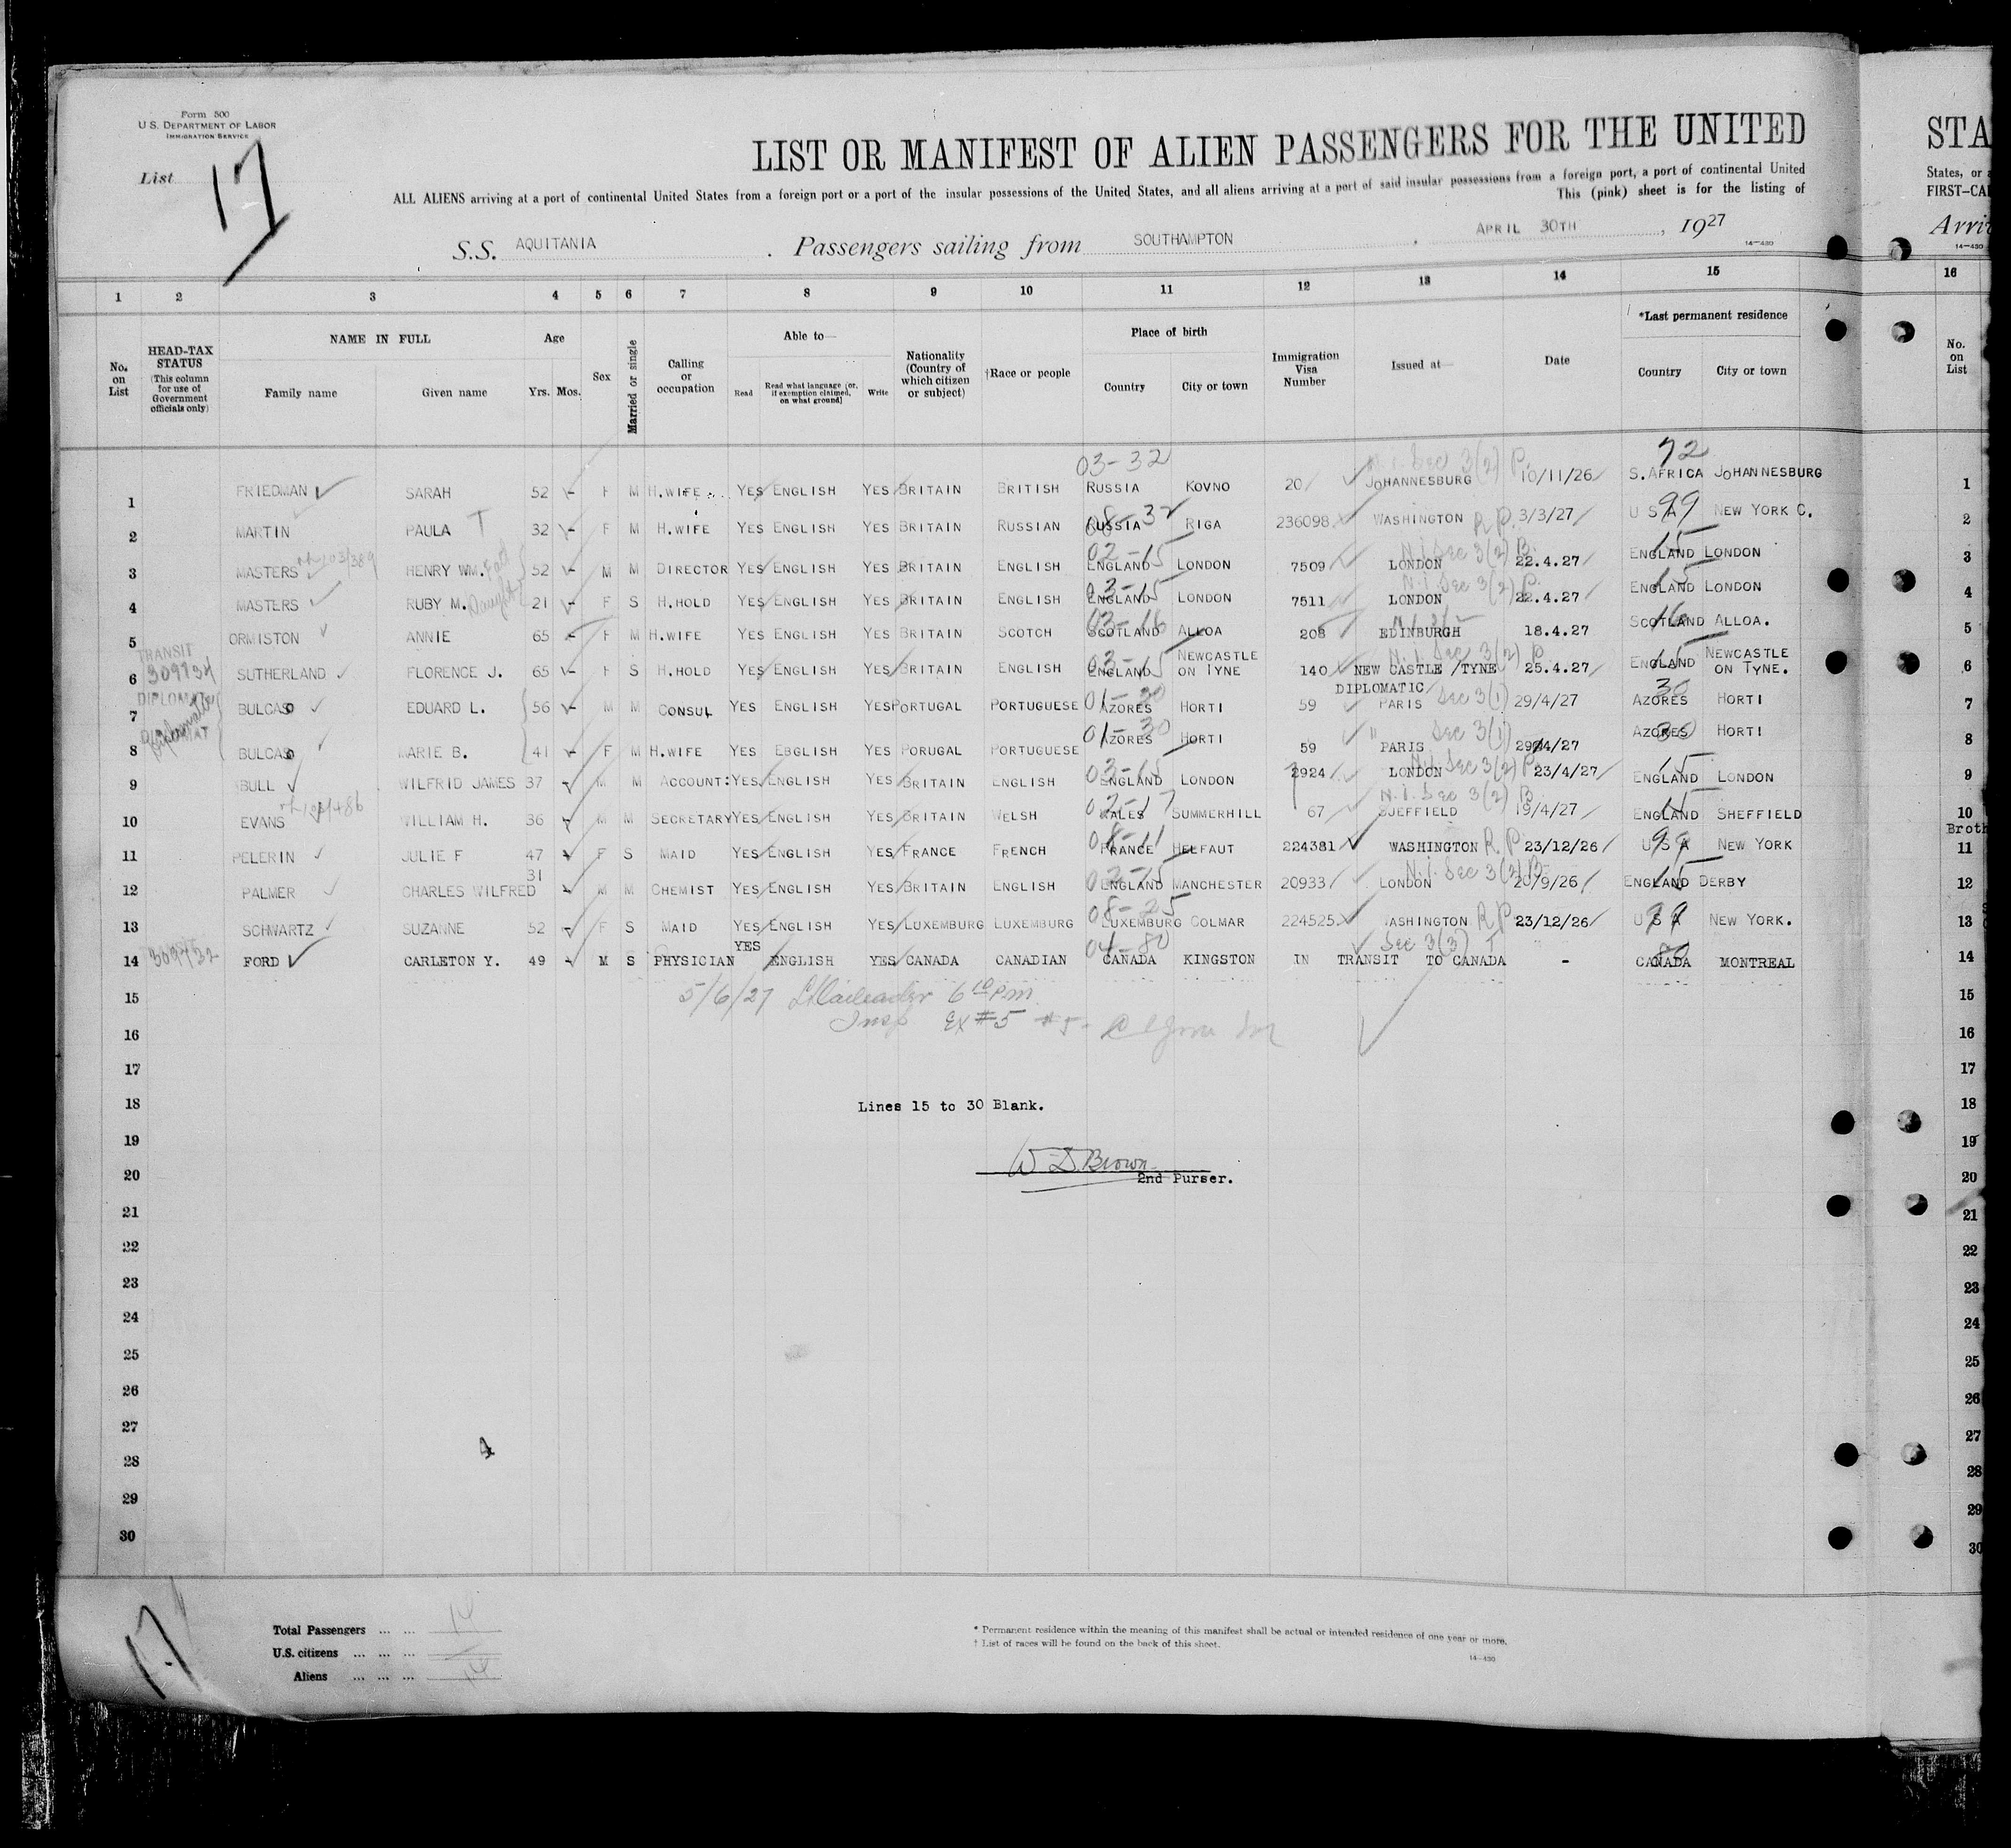 Form 500
U.S. DEPARTMENT OF LABOR
IMMIGRATION SERVICE
List 17
LIST OR MANIFEST OF ALIEN PASSENGERS FOR THE UNITED STA
ALL ALIENS arriving at a port of continental United States from a foreign port or a port of the insular possessions of the United States, and all aliens arriving at a port of said insular possessions from a foreign port, a port of continental United States, or
This (pink) sheet is for the listing of FIRST-CA
S.S. AQUITANIA . Passengers sailing from SOUTHAMPTON , APRIL 30TH , 1927
14-430
1 2 3 4 5 6 7 8 9 10 11 12 13 14 15 16
No. on List
HEAD-TAX STATUS (This column for use of Government officials only)
NAME IN FULL Family name Given name
Age Yrs. Mos.
Sex
Married or single
Calling or occupation
Able to— Read Read what language [or, if exemption claimed, on what ground] Write
Nationality (Country of which citizen or subject)
†Race or people
Place of birth Country City or town
Immigration Visa Number
Issued at—
Date
*Last permanent residence Country City or town
No. on List
03-32 N.I. Sec 3(2) P. 72
1 FRIEDMAN SARAH 52 - F M H.WIFE YES ENGLISH YES BRITAIN BRITISH RUSSIA KOVNO 20 JOHANNESBURG 10/11/26 S.AFRICA JOHANNESBURG 1
2 MARTIN PAULA T 32 - F M H.WIFE YES ENGLISH YES BRITAIN RUSSIAN RUSSIA RIGA 236098 WASHINGTON R P. 3/3/27 U S A 99 NEW YORK C. 2
02-15 N.I. Sec 3(2) B. 15
3 MASTERS HENRY WM. 52 - M M DIRECTOR YES ENGLISH YES BRITAIN ENGLISH ENGLAND LONDON 7509 LONDON 22.4.27 ENGLAND LONDON 3
03-15 N.I. Sec 3(2) P. 15
4 MASTERS RUBY M. 21 - F S H.HOLD YES ENGLISH YES BRITAIN ENGLISH ENGLAND LONDON 7511 LONDON 22.4.27 ENGLAND LONDON 4
03-16 16
5 ORMISTON ANNIE 65 - F M H.WIFE YES ENGLISH YES BRITAIN SCOTCH SCOTLAND ALLOA 208 EDINBURGH 18.4.27 SCOTLAND ALLOA. 5
TRANSIT 03-15 N.I. Sec 3(2) P 15
6 SUTHERLAND FLORENCE J. 65 - F S H.HOLD YES ENGLISH YES BRITAIN ENGLISH ENGLAND NEWCASTLE ON TYNE 140 NEW CASTLE /TYNE 25.4.27 ENGLAND NEWCASTLE ON TYNE. 6
DIPLOMAT 01-30 DIPLOMATIC Sec 3(1) 30
7 BULCAO EDUARD L. 56 - M M CONSUL YES ENGLISH YES PORTUGAL PORTUGUESE AZORES HORTI 59 PARIS 29/4/27 AZORES HORTI 7
01-30 " Sec 3(1) 30
8 BULCAO MARIE B. 41 - F M H.WIFE YES EBGLISH YES PORUGAL PORTUGUESE AZORES HORTI 59 PARIS 29/4/27 AZORES HORTI 8
03-15 N.I. Sec 3(2) P. 15
9 BULL WILFRID JAMES 37 - M M ACCOUNT: YES ENGLISH YES BRITAIN ENGLISH ENGLAND LONDON 2924 LONDON 23/4/27 ENGLAND LONDON 9
02-17 N.I. Sec 3(2) B. 15
10 EVANS WILLIAM H. 36 - M M SECRETARY YES ENGLISH YES BRITAIN WELSH WALES SUMMERHILL 67 SJEFFIELD 19/4/27 ENGLAND SHEFFIELD 10
Broth
08-11 99
11 PELERIN JULIE F 47 - F S MAID YES ENGLISH YES FRANCE FRENCH FRANCE HELFAUT 224381 WASHINGTON R.P. 23/12/26 U S A NEW YORK 11
02-15 N.I. Sec 3(2) B- 15
12 PALMER CHARLES WILFRED 31 - M M CHEMIST YES ENGLISH YES BRITAIN ENGLISH ENGLAND MANCHESTER 20933 LONDON 20/9/26 ENGLAND DERBY 12
08-25 99
13 SCHWARTZ SUZANNE 52 - F S MAID YES ENGLISH YES LUXEMBURG LUXEMBURG LUXEMBURG COLMAR 224525 WASHINGTON R P. 23/12/26 U S A NEW YORK. 13
04-80 Sec 3(3) T 80
14 FORD CARLETON Y. 49 - M S PHYSICIAN YES ENGLISH YES CANADA CANADIAN CANADA KINGSTON IN TRANSIT TO CANADA - CANADA MONTREAL 14
15 5/6/27 6 10 P.m. 15
16 Insp Ex #5 #5- 16
17 17
18 Lines 15 to 30 Blank. 18
19 19
W D Brown
20 2nd Purser. 20
21 21
22 22
23 23
24 24
25 25
26 26
27 27
28 28
29 29
30 30
17
Total Passengers ... ... 14
U.S. citizens ... ... ...
Aliens ... ... ... 14
* Permanent residence within the meaning of this manifest shall be actual or intended residence of one year or more.
† List of races will be found on the back of this sheet.
14-430